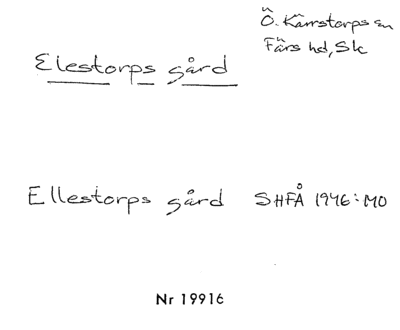 Ö. Kärrstorps sn
Färs hd, Sk
Elestorps gård
Ellestorps gård SHFÅ 1946: MO
Nr 19916